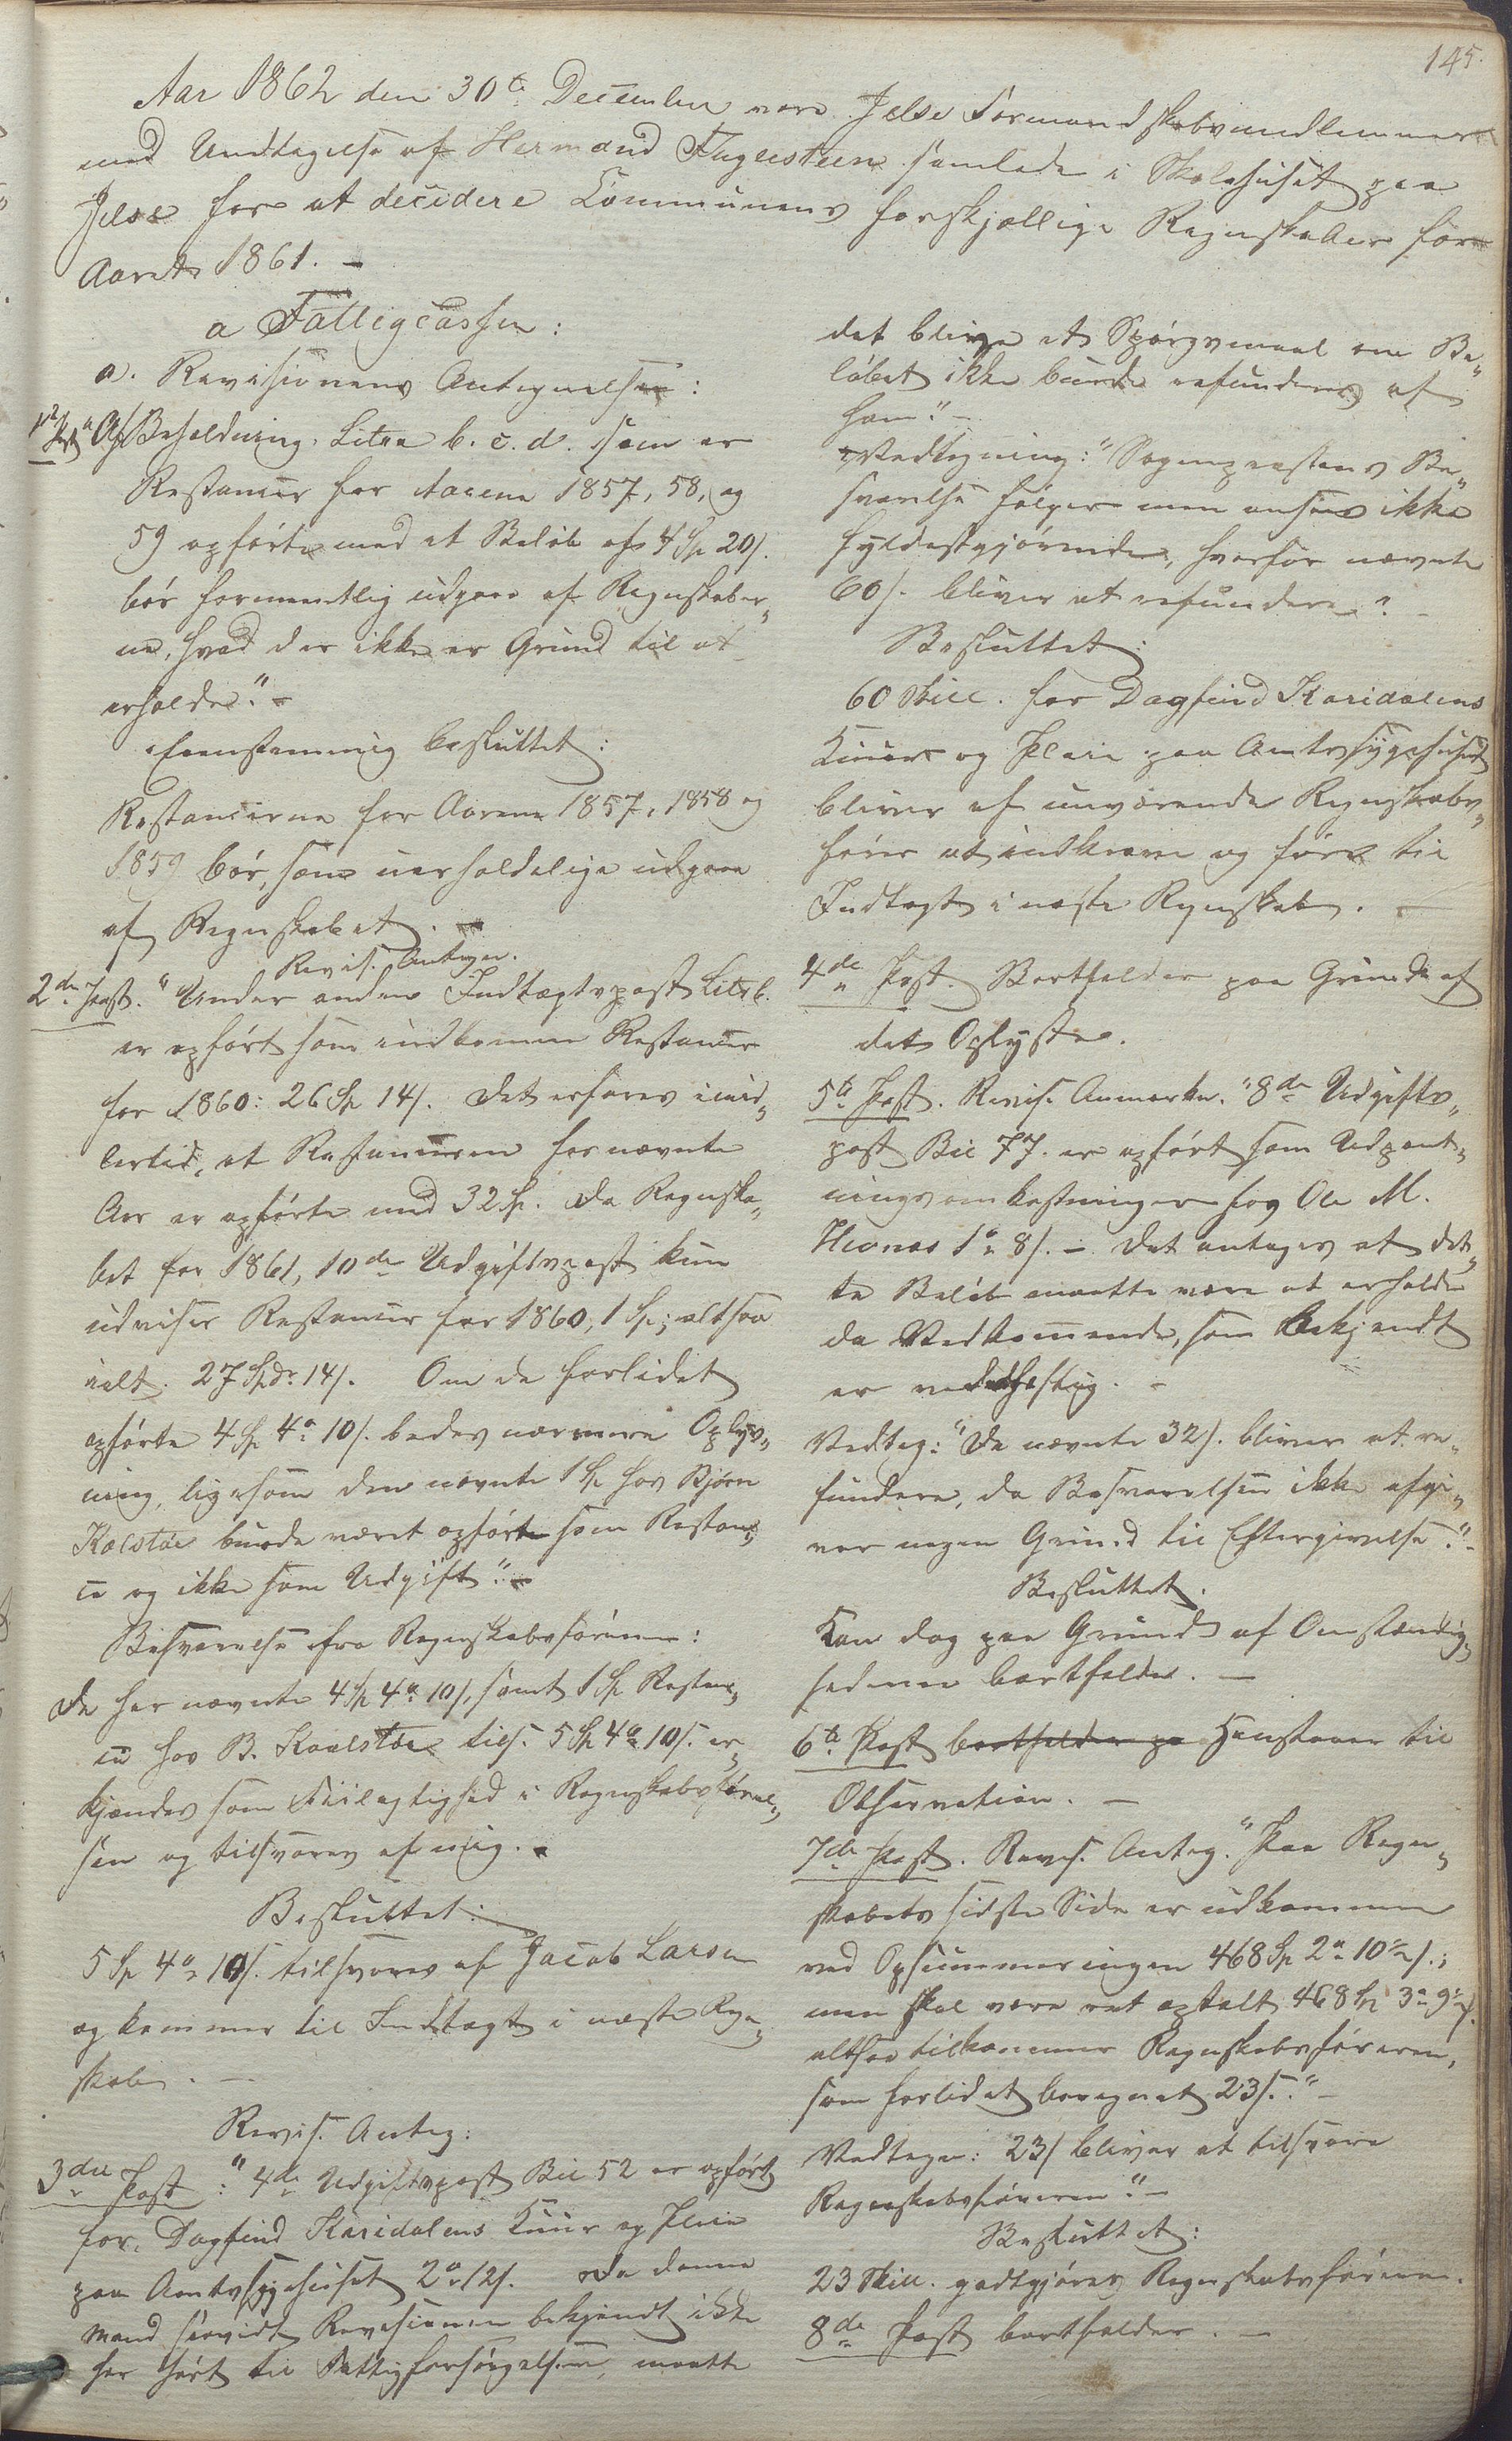 145.
Aar 1862 den 30te December vare Jelse Formandskabsmedlemmer
med Undtagelse af Hermand Fugleesteen samlede i Skolehuset paa
Jelse for at decidere Communens forskjællige Regnskaber for
Aaret 1861. –
a Fattigcassen:
a. Revisionens Antegnelser:
1ste Post "Af Beholdning. Litra b. c. d. som er
Restancer for Aarene 1857, 58, og
59 opførte med et Beløb af 4 Sp 20 s.
bør formentlig udgaae af Regnskaber„
ne, hvad der ikke er Grund til at
erholde." –
Eenstemmig besluttet:
Restancerne for Aarene 1857, 1858 og
1859 bør, som uerholdelige udgaae
af Regnskabet. –
Revis. Antegn.
2den Post. "Under anden Indtægtspost Litr b.
er opført som indkomne Restancer
for 1860: 26 Sp 14 s. Det erfares imid„
lertid, at Restancerne for nævnte
Aar er opførte med 32 Sp. Da Regnska„
bet for 1861, 10de Udgiftspost kun
udviser Restancer for 1860, 1 Sp; altsaa
ialt 27 Spdr 14 s. Om de forlidet
opførte 4 Sp 4 o 10 s. bedes nærmere Oplys„
ning, ligesom den nævnte 1 Sp hos Bjørn
Kolstøe burde været opført som Restan„
ce og ikke som Udgift." –
Besvarelse fra Regnskabsføreren:
De her nævnte 4 Sp 4 o 10 s, samt 1 Sp Restan„
ce hos B. Kaalstøe tils. 5 Sp 4 o 10 s. er„
kjendes som Feilagtighed i Regnskabsførel„
sen og tilsvares af mig. –
Besluttet:
5 Sp 4 o 10 s. tilsvares af Jacob Larsen
og kommer til Indtægt i næste Regn„
skab. –
Revis. Anteg:
3die Post: "4de Udgiftspost Bil 52 er opført
for Dagfind Karidalens Kuur og Pleie
paa Amtssygehuset 2 o 12 s. Da denne
Mand saavidt Revisionen bekjendt ikke
har hørt til Fattigforsørgelsen, maatte
det blive et Spørgsmaal om Be„
løbet ikke burde refunderes af
ham." –
Vedtegning: "Sognepræstens Be„
svarelse følger men ansees ikke
fyldestgjørende, hvorfor nævnte
60 s. bliver at refundere". –
Besluttet:
60 Skill. for Dagfind Karidalens
Kuur og Pleie paa Amtssygehuset
bliver af nuværende Regnskabs„
fører at indkræve og føre til
Indtægt i næste Regnskab. –
4de Post. Bortfalder paa Grund af
det Oplyste.
5te Post. Revis. Anmærkn. "8de Udgifts„
post Bil 77. er opført som Udpant„
ningsomkostninger hos Ole M.
Hionæs 1 o 8 s. – Det antages at det„
te Beløb maatte være at erholde
da Vedkommende, som bekjendt
er vedhæftig. –
Vedteg: "De nævnte 32 s. bliver at re„
fundere, da Besvarelsen ikke afgi„
ver nogen Grund til Eftergivelse." –
Besluttet.
Kan dog paa Grund af Omstændig„
hederne bortfalde. –
6te Post bortfalder pa Henstaaer til
Observation. –
7de Post. Revis. Anteg. "Paa Regn„
skabets sidste Side er udkommen
ved Opsummeringen 468 Sp 2 o 10 s.;
men skal være ret optalt 468 Sp 3 o 9 s.
altsaa tilkommer Regnskabsføreren,
som forlidet beregnet 23 s." –
Vedtegn: 23 s bliver at tilsvare
Regnskabsføreren." –
Besluttet:
23 Skill. godtgjøres Regnskabsføreren.
8de Post bortfalder. –